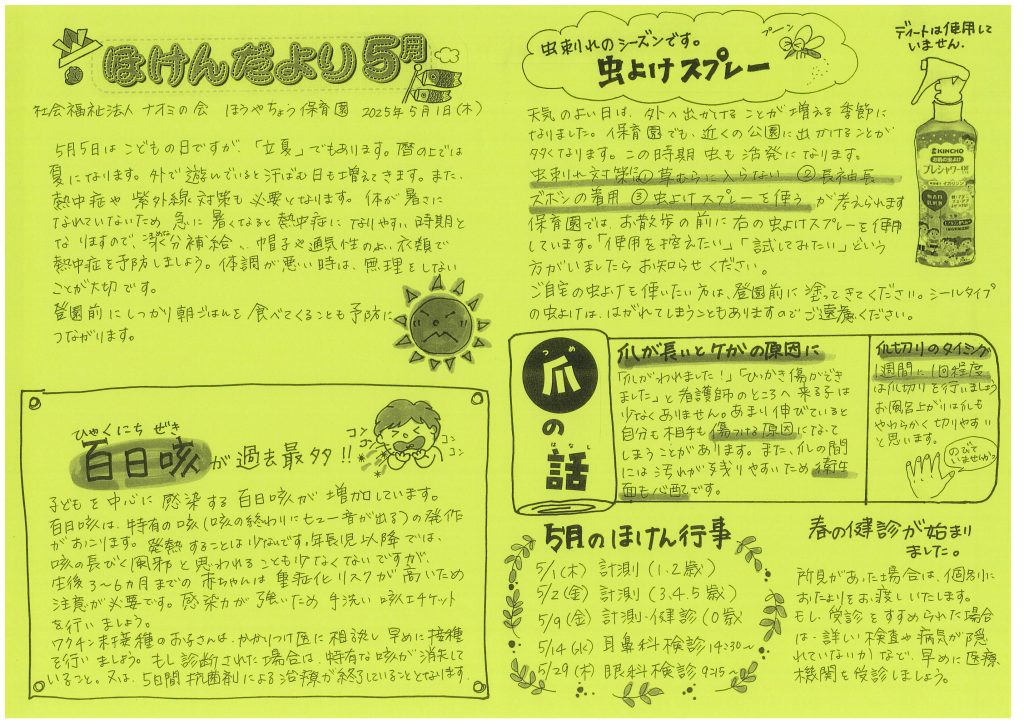 ほけんだより5月
社会福祉法人 ナオミの会 ほうやちょう保育園 2025年5月1日(木)
5月5日はこどもの日ですが、「立夏」でもあります。暦の上では
夏になります。外で遊んでいると汗ばむ日も増えてきます。また、
熱中症や紫外線対策も必要となります。体が暑さに
なれていないため 急に暑くなると熱中症になりやすい時期と
なりますので、水分補給、帽子や通気性のよい衣類で
熱中症を予防しましょう。体調が悪い時は、無理をしない
ことが大切です。
登園前にしっかり朝ごはんを食べてくることも予防に
つながります。
ひゃくにち ぜき
百日咳が過去最多!!
コン
コン
コン
コン
子どもを中心に感染する百日咳が増加しています。
百日咳は、特有の咳(咳の終わりにヒュー音が出る)の発作
がおこります。発熱することは少ないです。年長児以降では、
咳の長びく風邪と思われることも少なくないですが、
生後3~6ヵ月までの赤ちゃんは重症化リスクが高いため
注意が必要です。感染力が強いため手洗い咳エチケット
を行いましょう。
ワクチン未接種のお子さんは、かかりつけ医に相談し早めに接種
を行いましょう。もし診断された場合は、特有な咳が消失して
いること。又は、5日間抗菌剤による治療が終了していることとなります。
虫刺れのシーズンです。
虫よけスプレー
プーン
ディートは使用して
いません。
KINCHO
お肌の虫よけ
プレシャワーDF
天気のよい日は、外へ出かけることが増える季節に
なりました。保育園でも、近くの公園に出かけることが
多くなります。この時期 虫も活発になります。
虫刺れ対策は①草むらに入らない ②長袖長
ズボンの着用 ③虫よけスプレーを使う が考えられます
保育園では、お散歩の前に右の虫よけスプレーを使用
しています。「使用を控えたい」「試してみたい」という
方がいましたらお知らせください。
ご自宅の虫よけを使いたい方は、登園前に塗ってきてください。シールタイプ
の虫よけは、はがれてしまうこともありますのでご遠慮ください。
つめ
爪の話
はなし
爪が長いとケガの原因に
「爪がわれました!」「ひっかき傷ができ
ました」と看護師のところへ来る子は
少なくありません。あまり伸びていると
自分も相手も傷つける原因になって
しまうことがあります。また、爪の間
には汚れが残りやすいため衛生
面も心配です。
爪切りのタイミング
1週間に1回程度
は爪切りを行いましょう
お風呂上がりは爪も
やわらかく切りやすい
と思います。
のびて
いませんか?
5月のほけん行事
5/1(木) 計測(1.2歳)
5/2(金) 計測(3.4.5歳)
5/9(金) 計測・健診(0歳
5/14(水) 耳鼻科検診14:30~
5/29(木) 眼科検診9:15~
春の健診が始まり
ました。
所見があった場合は、個別に
おたよりをお渡しいたします。
もし、受診をすすめられた場合
は、詳しい検査や病気が隠
れていないかなど、早めに医療
機関を受診しましょう。